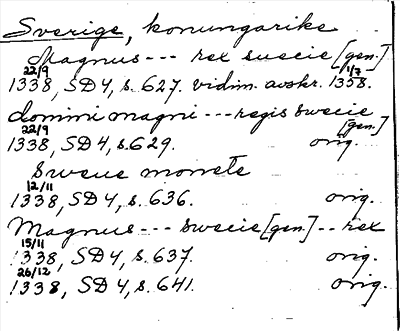 Sverige, konungarike
Magnus --- rex suecie [gen.]
22/9 1/7
1338, SD 4, s. 627. vidim. avskr. 1358.
domini magni --- regis swecie [gen.]
22/9
1338, SD 4, s. 629. orig.
sweue monete
12/11
1338, SD 4, s. 636. orig.
Magnus --- swecie [gen.] -- rex
15/11
1338, SD 4, s. 637. orig.
26/12
1338, SD 4, s. 641. orig.